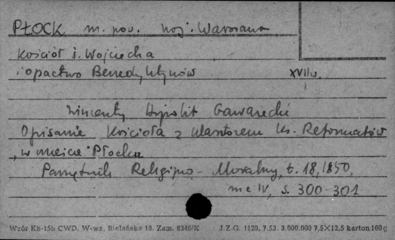 PŁOCK m. pow. woj. Warszawa
Kościół ś. Wojciecha
i opactwo Benedyktynów XVII w.
Wincenty Hipolit Gawarecki
Opisanie Kościoła z klasztorem ks. Reformatów
"w mieście Płocku"
Pamiętnik Religijno-Moralny, t. 18, 1850,
nr IV, s. 300-301
Wzór Kb-15b CWD, W-wa, Bielańska 18. Zam. J.Z.G. 1120, 7.53. 3.000.000 7,5X12,5 karton 160 g